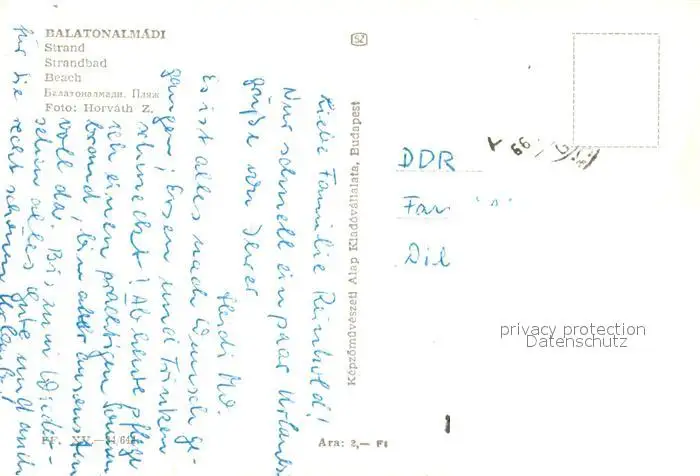 BALATONALMÁDI
Strand
Strandbad
Beach
Балатоналмади. Пляж
Foto: Horváth Z.
SZ
Képzőművészeti Alap Kiadóvállalata, Budapest
Liebe Familie Reinhold!
Nur schnell ein paar Urlaubs
grüße von
Heidi
Es ist alles nach Wunsch ge-
gangen, Essen und Trinken
schmeckt! Ab heute pflege
ich einen prächtigen Sonnen
brand, bin aber ansonsten
voll da. Bis zum Wieder-
sehen alles Gute und auch
für Sie recht schönen Urlaub!
DDR
Fam
Dil
66
XV.
Ára: 2,— Ft
privacy protection
Datenschutz